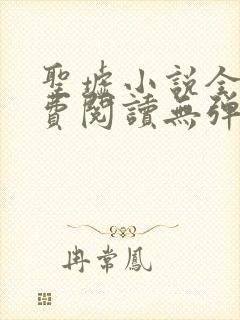 聖墟小說全
費閱讀無彈
冉常鳳